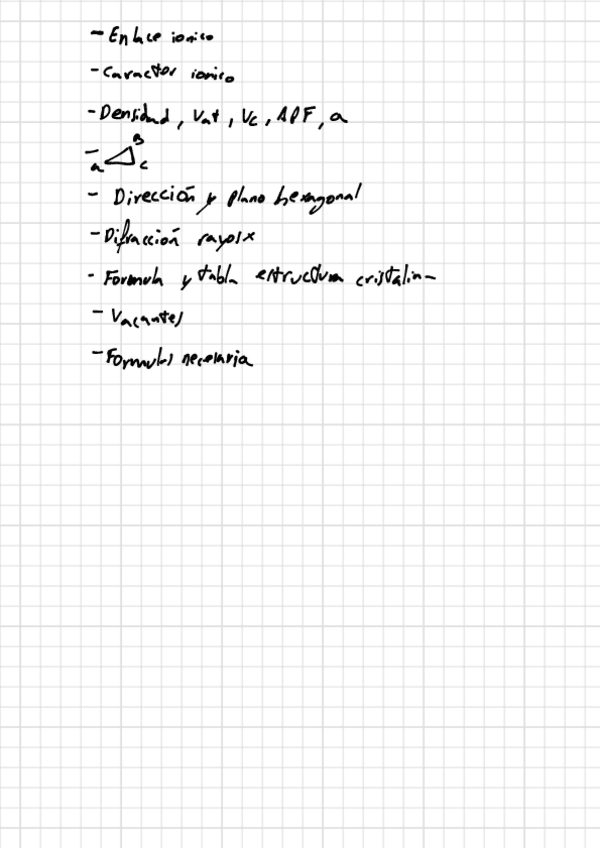 - Enlace ionico
- Caracter ionico
- Densidad, Vat, Vc, APF, a
- a B c
- Dirección y plano hexagonal
- Difracción rayos x
- Formula y tabla estructura cristalina
- Vacantes
- Formulas necesaria